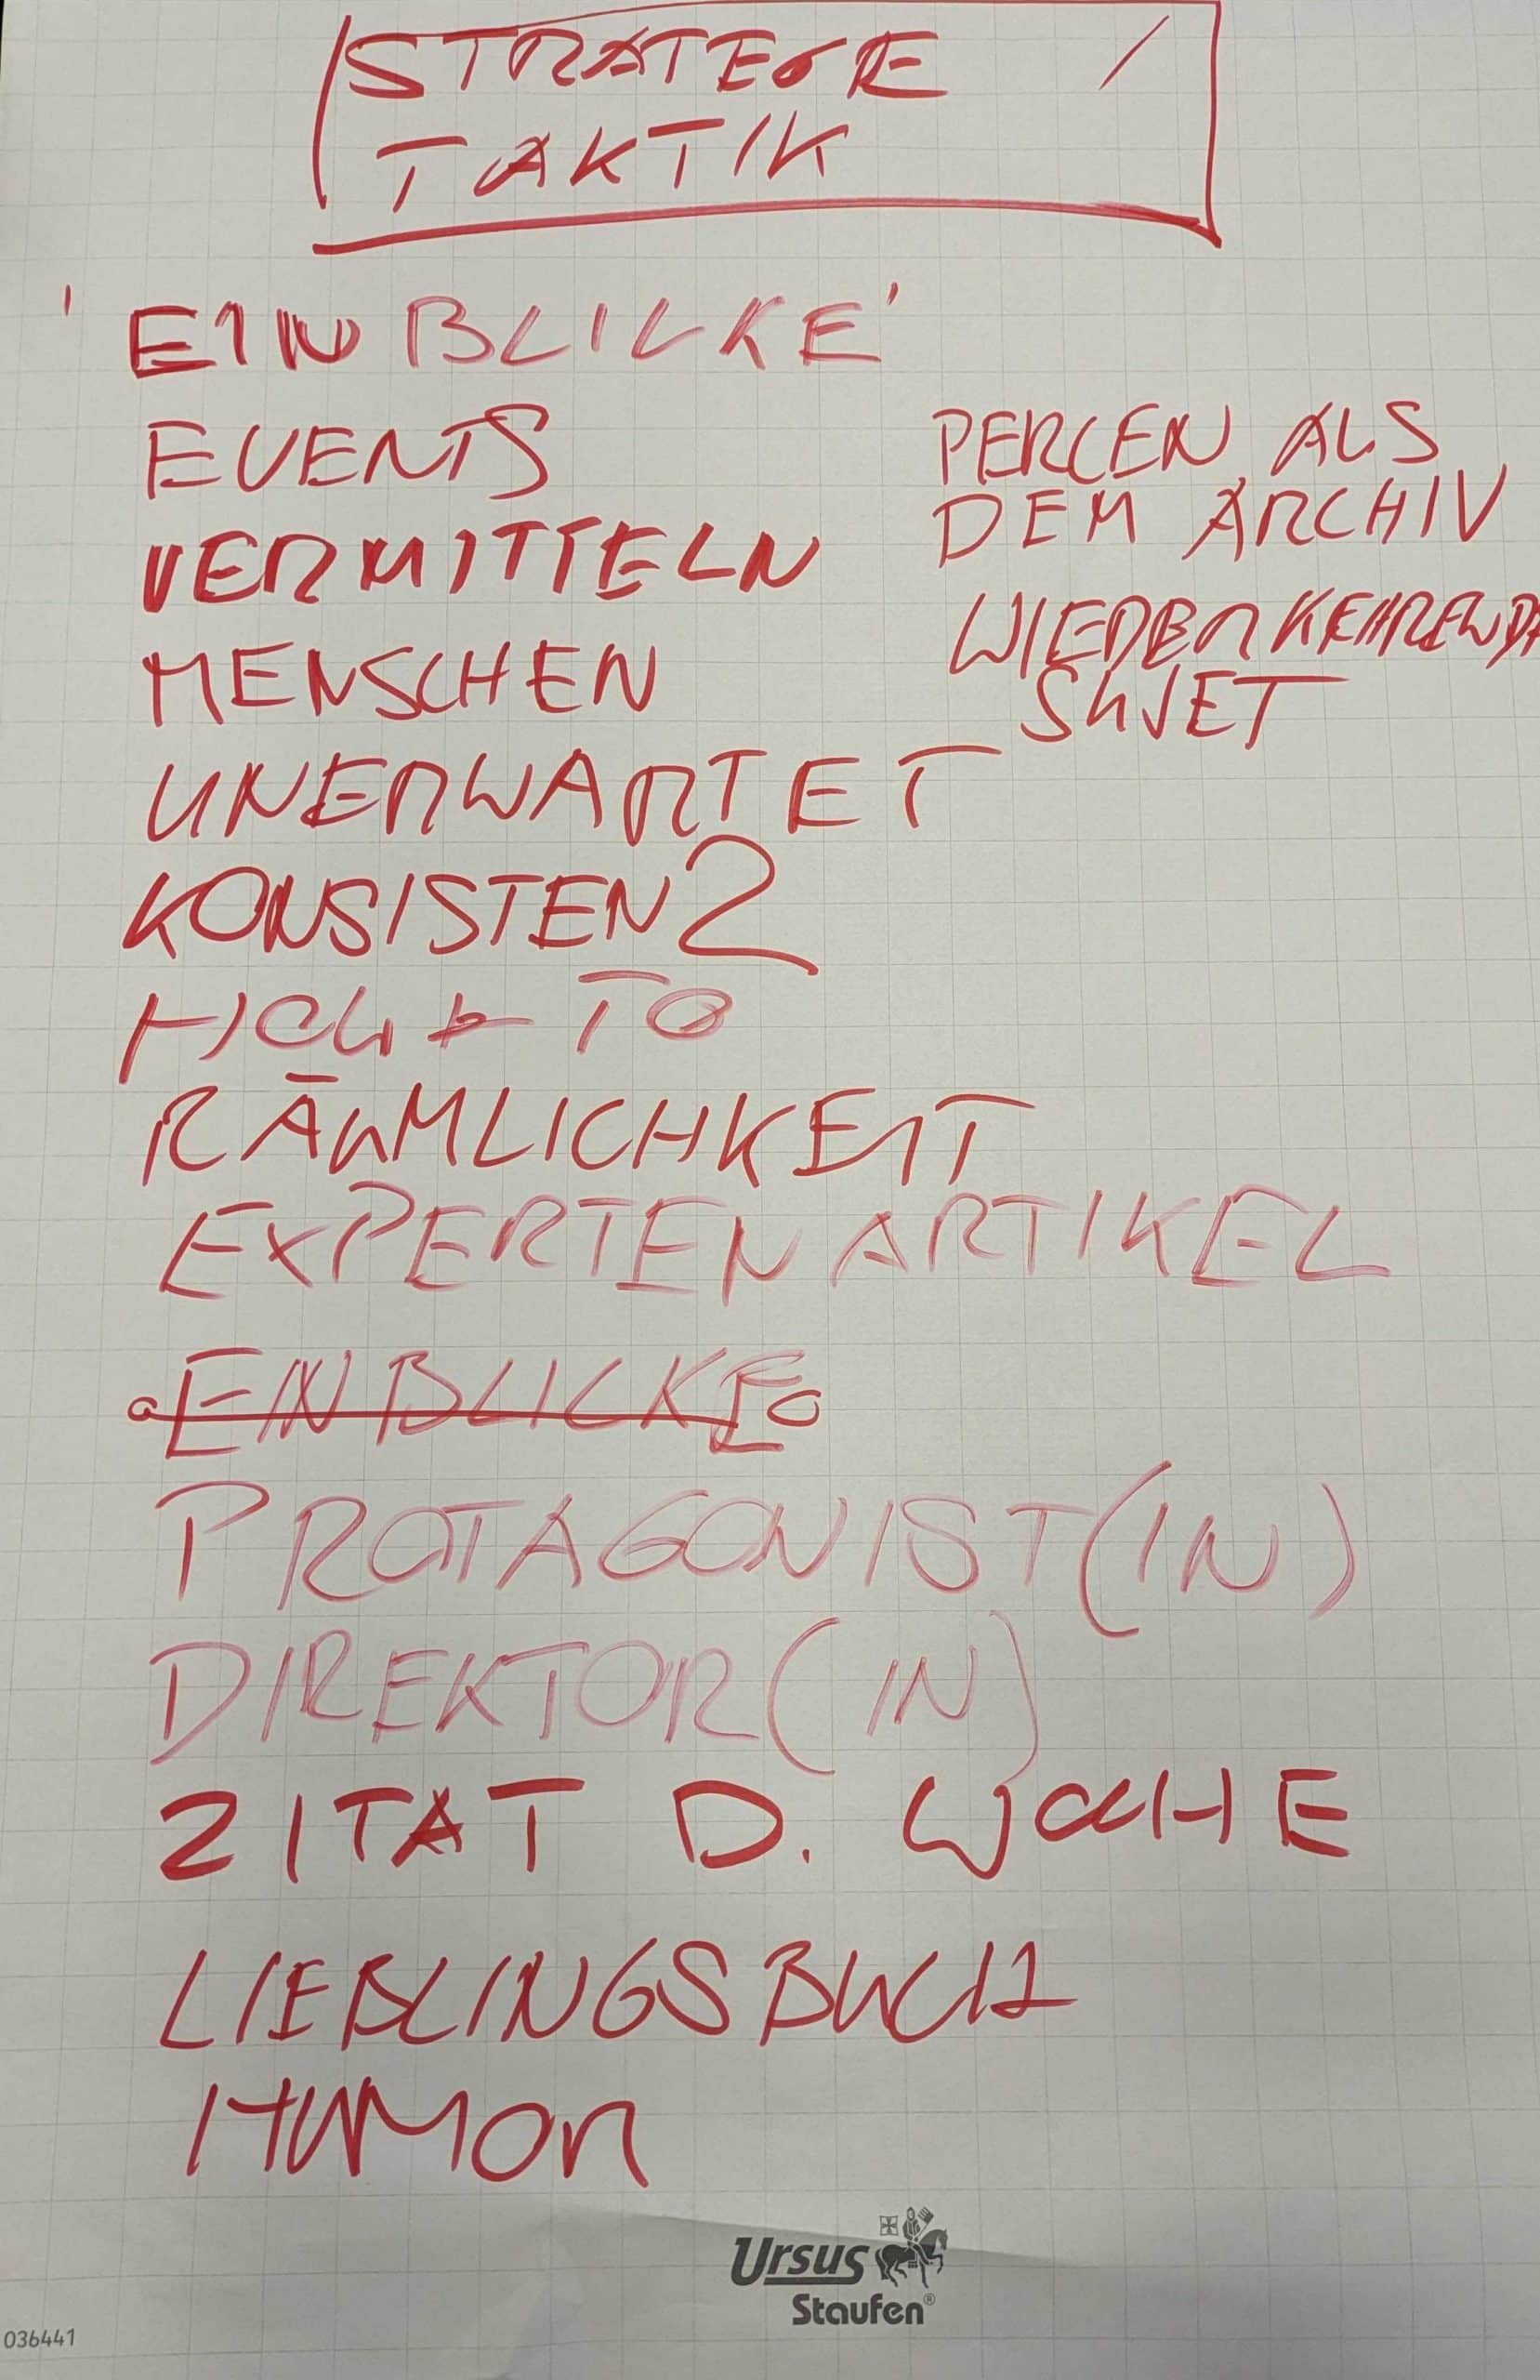 STRATEGIE /
TAKTIK
'EINBLICKE'
EVENTS
VERMITTELN
MENSCHEN
UNERWARTET
KONSISTENZ
HOW TO
RÄUMLICHKEIT
EXPERTENARTIKEL
EINBLICKE
PROTAGONIST(IN)
DIREKTOR(IN)
ZITAT D. WOCHE
LIEBLINGSBUCH
HUMOR
PERLEN AUS
DEM ARCHIV
WIEDERKEHREND
SUJET
Ursus
Staufen®
036441